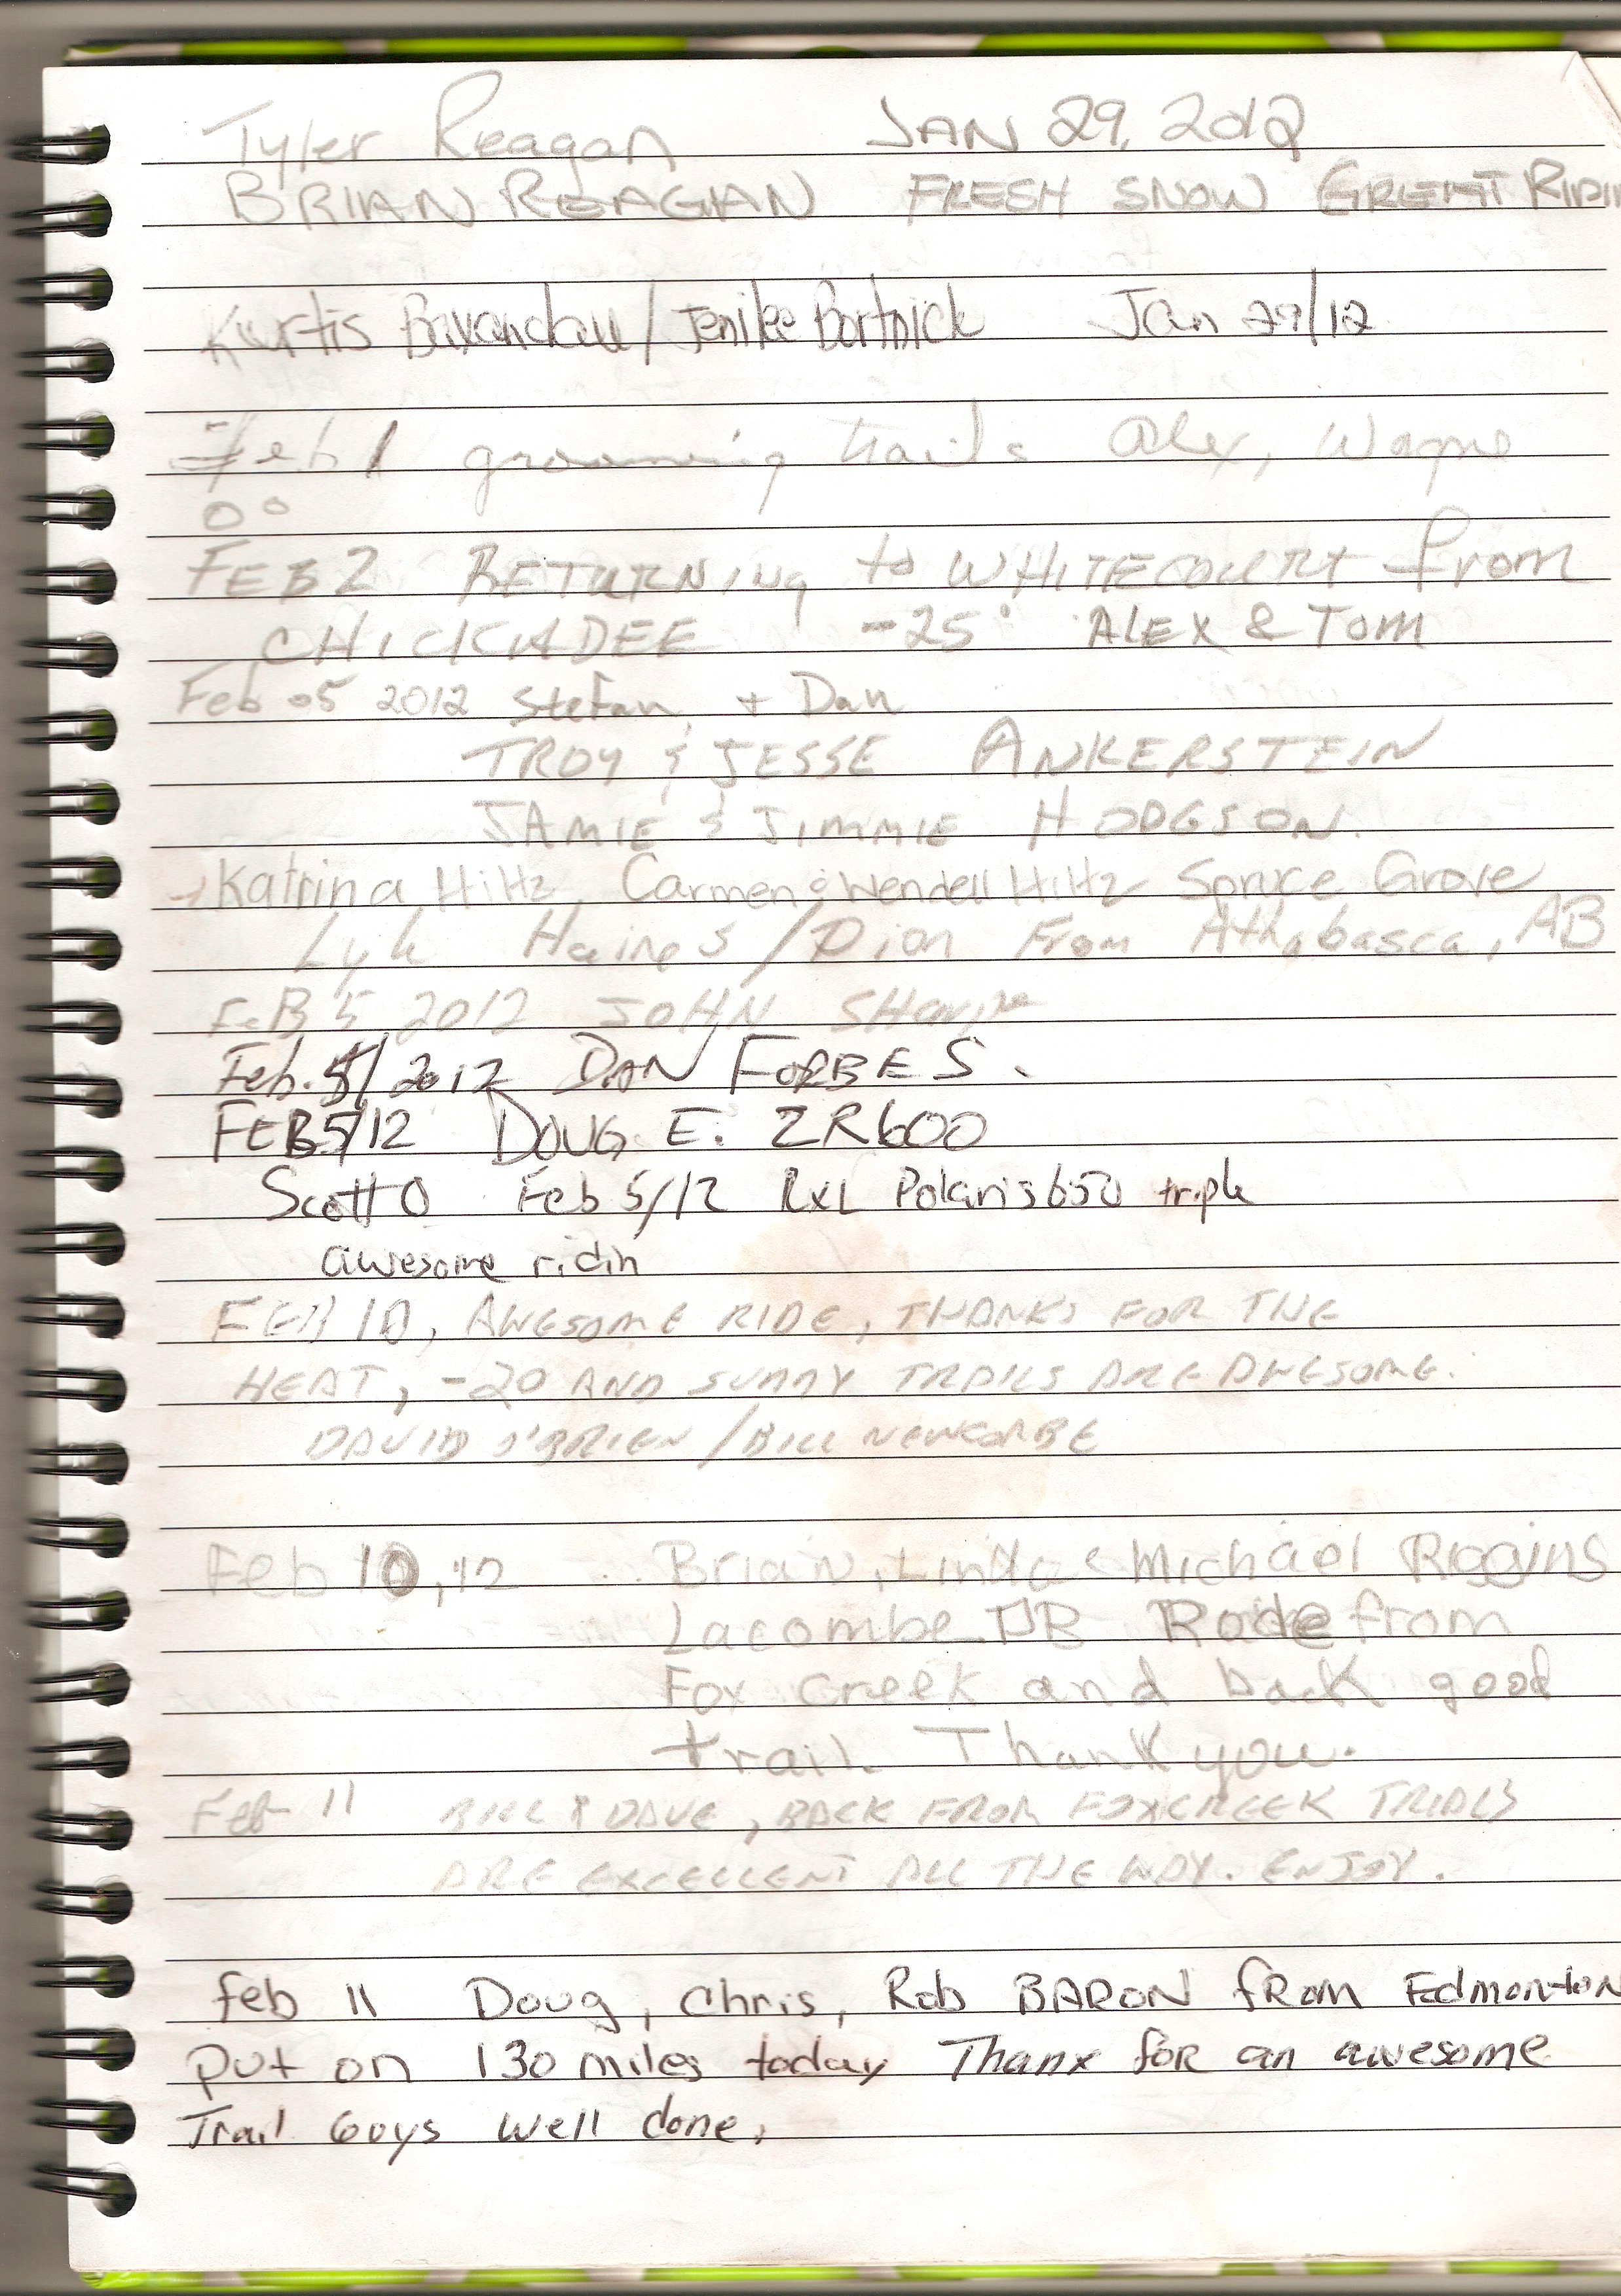 Tyler Reagan JAN 29, 2012
BRIAN REAGAN FRESH SNOW GREAT RIDIN
Kurtis Baxandall / Jenilee Bortnick Jan 29/12
Feb 1 grooming trails Alex, Wayne
0°
FEB 2 RETURNING to WHITECOURT from
CHICKADEE -25° ALEX & TOM
Feb 05 2012 Stefan + Dan
TROY & JESSE ANKERSTEIN
JAMIE & JIMMIE HODGSON.
Katrina Hiltz, Carmen & Wendell Hiltz Spruce Grove
Lyle Haines / Dion From Athabasca, AB
FEB 5 2012 JOHN
Feb. 5/2012 DAN FORBES.
FEB 5/12 DOUG E. ZR600
Scott O Feb 5/12 RXL Polaris 650 triple
awesome ridin
FEB 10, AWESOME RIDE, THANKS FOR THE
HEAT, -20 AND SUNNY TRAILS ARE AWESOME.
DAVID O'BRIEN / BILL NEWCOMBE
Feb 10, '12 Brian, Linda & Michael Riggins
Lacombe AB Rode from
Fox Creek and back good
trail. Thank you.
Feb 11 BILL & DAVE, BACK FROM FOXCREEK TRIALS
ARE EXCELLENT ALL THE WAY. ENJOY.
feb 11 Doug, Chris, Rob BARON from Edmonton
put on 130 miles today Thanx for an awesome
Trail Guys Well done.